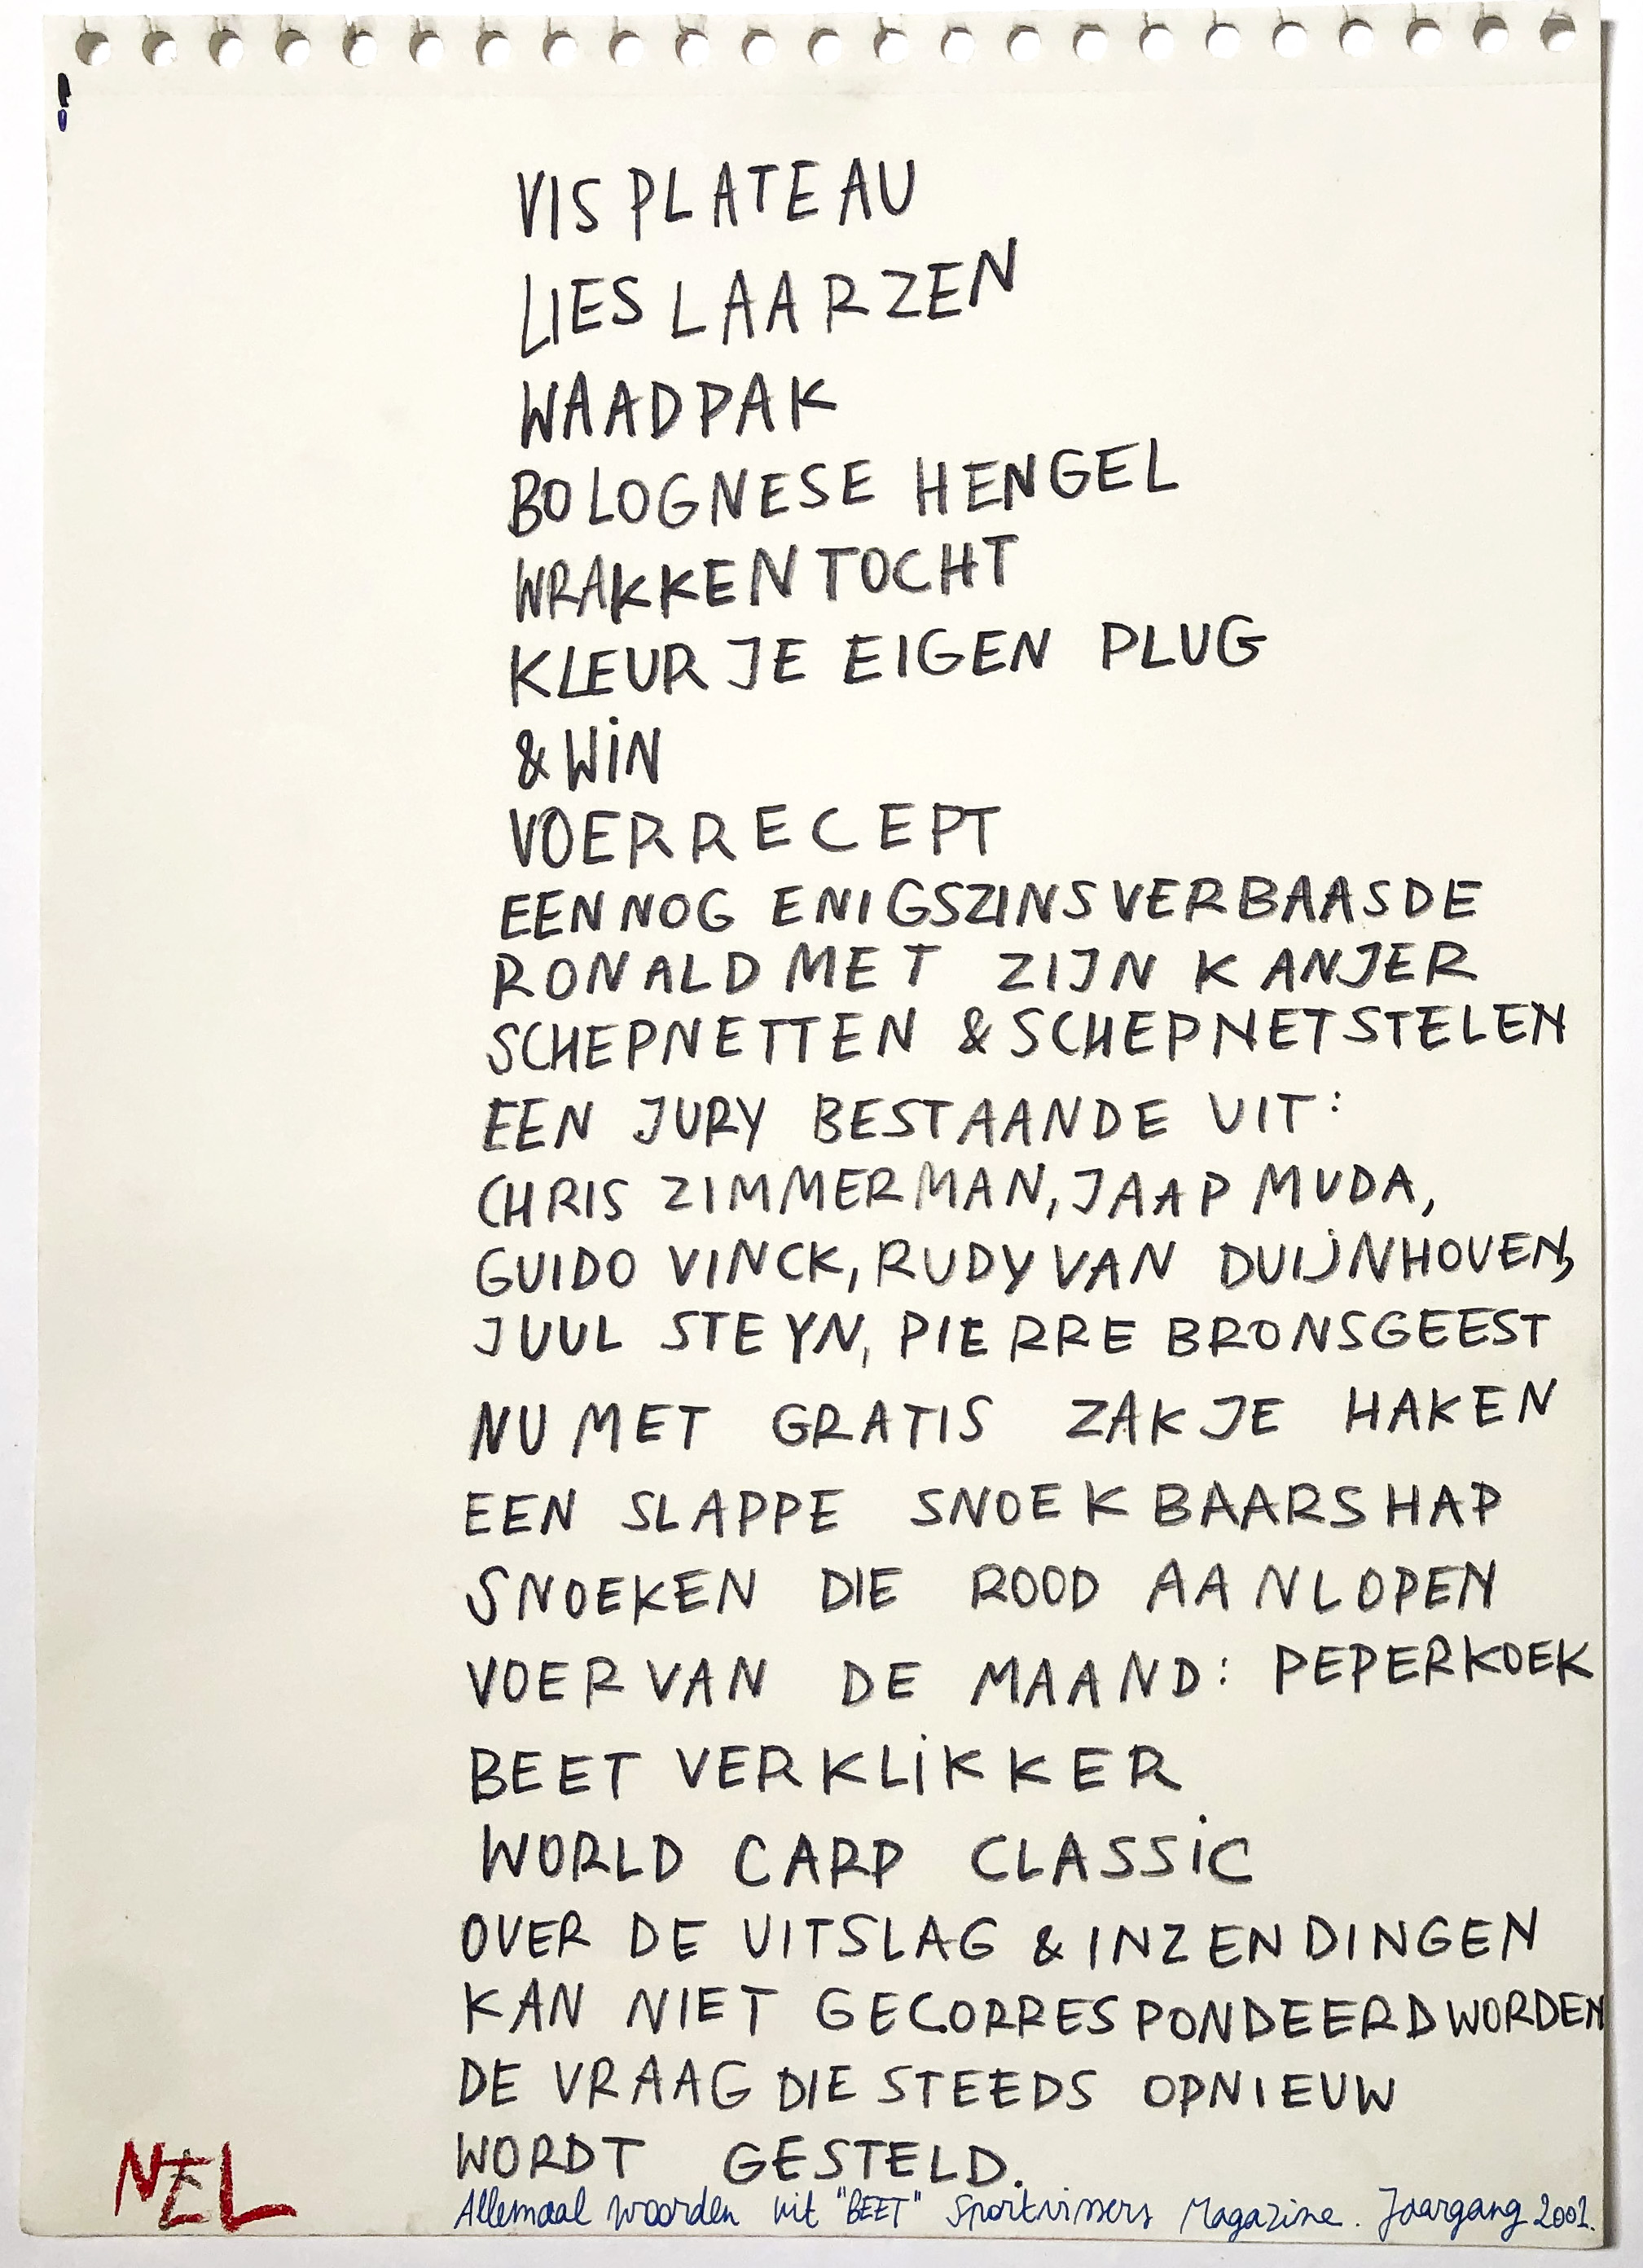 VISPLATEAU
LIESLAARZEN
WAADPAK
BOLOGNESE HENGEL
WRAKKENTOCHT
KLEUR JE EIGEN PLUG
& WiN
VOERRECEPT
EEN NOG ENIGSZINS VERBAASDE
RONALD MET ZIJN KANJER
SCHEPNETTEN & SCHEPNETSTELEN
EEN JURY BESTAANDE UIT:
CHRIS ZIMMERMAN, JAAP MUDA,
GUIDO VINCK, RUDY VAN DUIJNHOVEN,
JUUL STEYN, PIERRE BRONSGEEST
NU MET GRATIS ZAKJE HAKEN
EEN SLAPPE SNOEKBAARSHAP
SNOEKEN DIE ROOD AANLOPEN
VOER VAN DE MAAND: PEPERKOEK
BEETVERKLiKKER
WORLD CARP CLASSiC
OVER DE UITSLAG & INZENDINGEN
KAN NIET GECORRESPONDEERD WORDEN
DE VRAAG DIE STEEDS OPNIEUW
WORDT GESTELD.
Allemaal woorden uit "BEET" Sportvissers Magazine. Jaargang 2001.
NEL